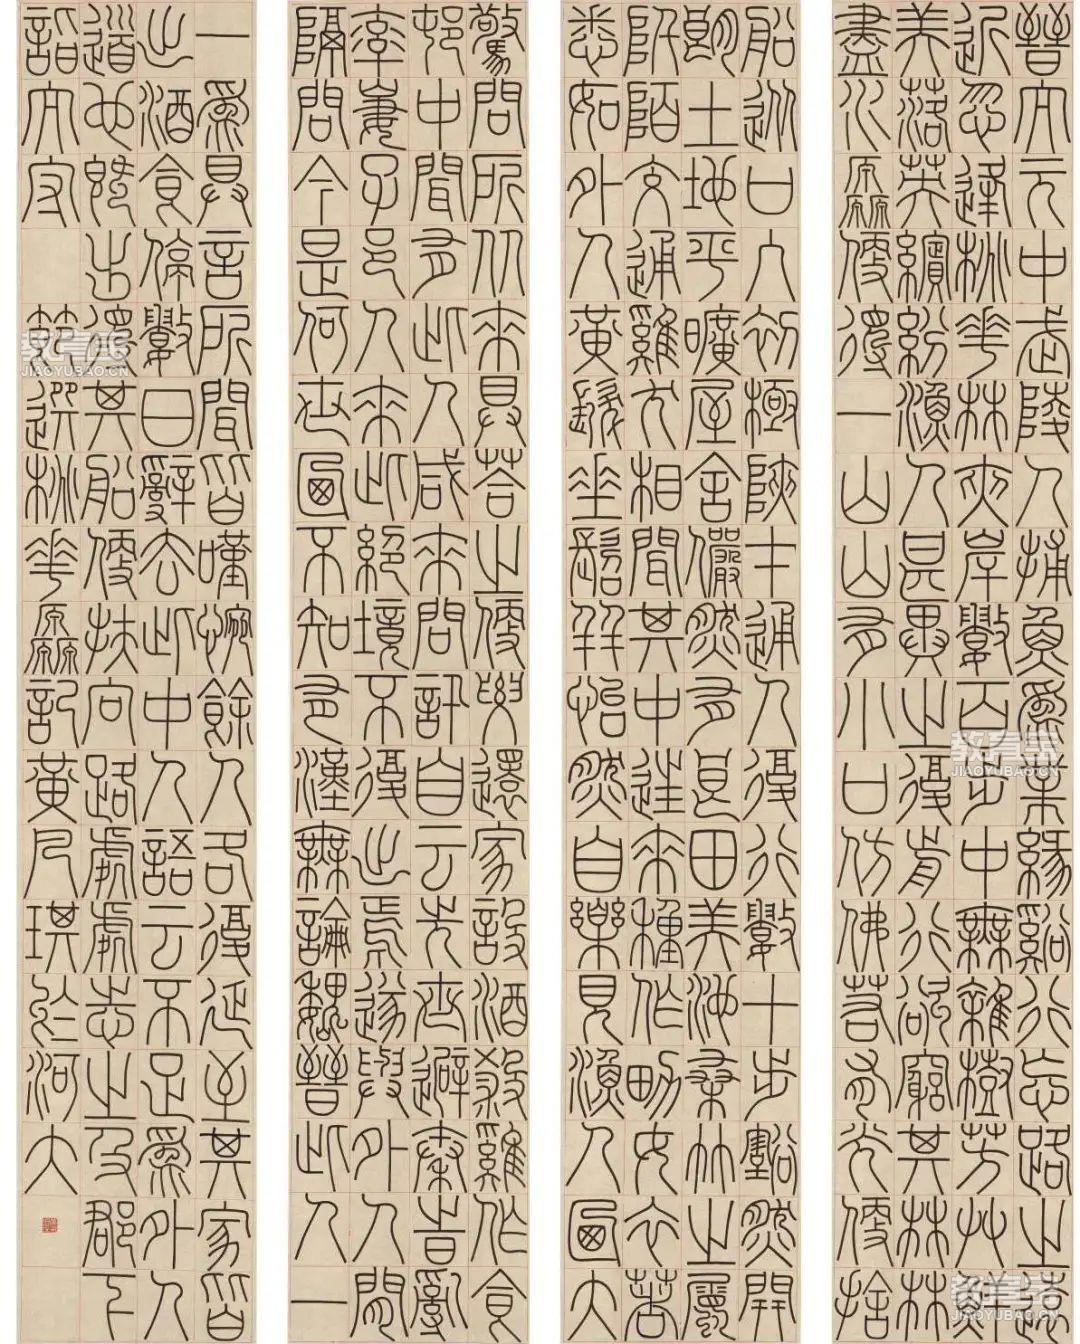 晉太元中武陵人捕魚爲業緣谿行忘路之遠
近忽逢桃華林夾岸數百步中無雜樹芳艸鮮
美落英繽紛漁人甚異之復前行欲窮其林林
盡水厵便得一山山有小口仿佛若有光便捨
船從口入初極陝才通人復行數十步豁然開
朗土地平曠屋舍儼然有良田美池桑竹之屬
阡陌交通雞犬相聞其中往來種作男女衣箸
悉如外人黃髮垂髫并怡然自樂見漁人乃大
驚問所从來具荅之便要還家設酒殺雞作食
邨中聞有此人咸來問訊自云先世避秦時亂
率妻子邑人來此絕境不復出焉遂與外人間
隔問今是何世乃不知有漢無論魏晉此人一
一爲具言所聞皆嘆惋餘人各復延至其家皆
出酒食停數日辭去此中人語云不足爲外人
道也既出得其船便扶向路處處志之及郡下
詣太守
節選桃華厵記黃凡琪於河大
教育宝
JIAOYUBAO.CN
教育宝
JIAOYUBAO.CN
教育宝
JIAOYUBAO.CN